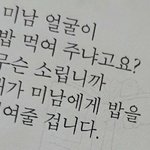 미남 얼굴이
밥 먹여 주냐고요?
무슨 소립니까
가 미남에게 밥을
여줄 겁니다.